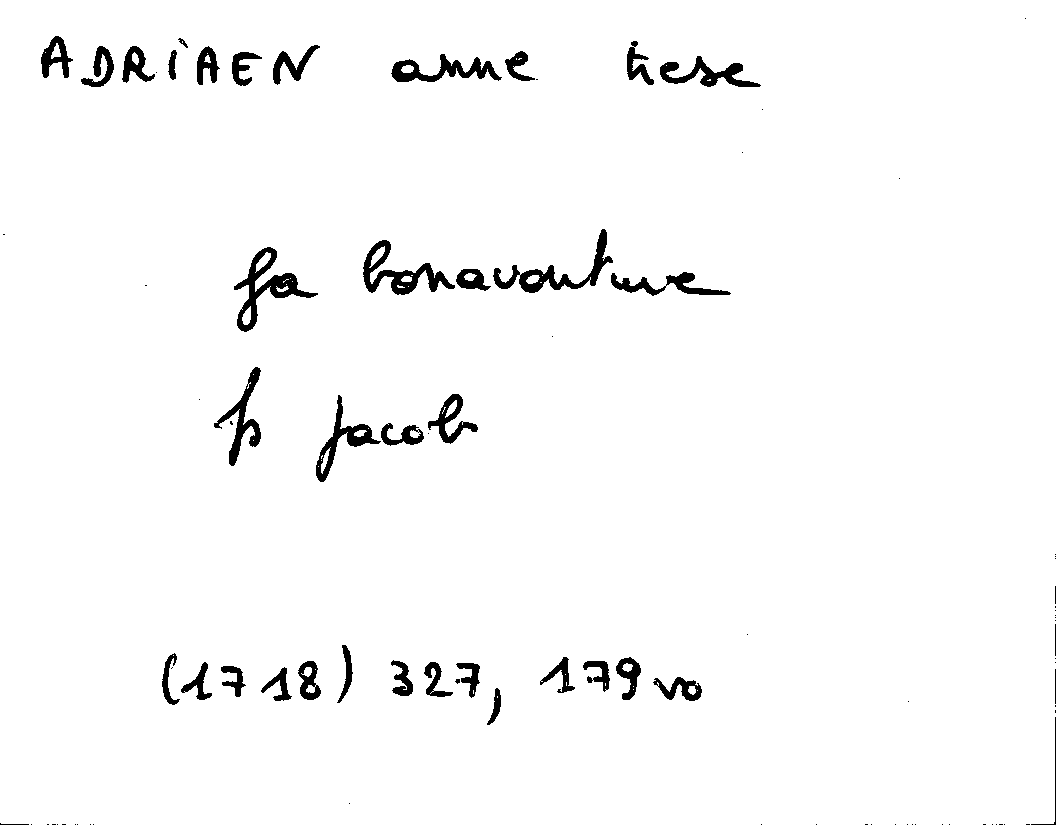 ADRIAEN anne trese
fa bonaventure
p Jacob
(1718) 327, 179 vo